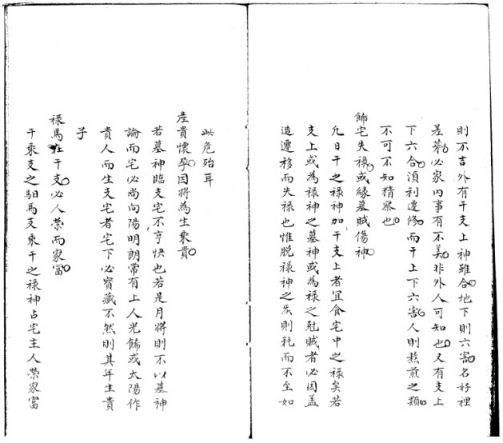 則不吉外有干支上神雖合地下則六害名好裡
差蘇必家内事有不美非外人可知也又有支上
下六合須利遷修而干上下六害人則熬煎之類
不可不知精察也
飾宅失祿或緣墓賊傷神
凡日干之祿神加干支上者宜食宅中之祿矣若
支上或為祿神之墓神或為祿之尅賊者必因蓋
造遷移而失祿也惟脫祿神之炁則耗而不至如
此危殆耳
產貴懷孕因將為生氣貴
若墓神臨支宅不亨快也若是月將則不以墓神
論而宅必尚向陽明朗常有上人光飾或太陽作
貴人而生支宅者宅下必寶藏不然則其年生貴
子
祿馬在干支必人榮而家富
干乘支之馹馬支乘干之祿神占宅主人榮家富